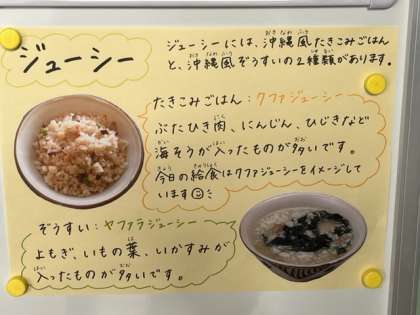 ジューシー
ジューシーには、沖縄風たきこみごはん
と、沖縄風ぞうすいの2種類があります。
たきこみごはん：クファジューシー
ぶたひき肉、にんじん、ひじきなど
海そうが入ったものが多いです。
今日の給食はクファジューシーをイメージして
います
ぞうすい：ヤファラジューシー
よもぎ、いもの葉、いかすみが
入ったものが多いです。